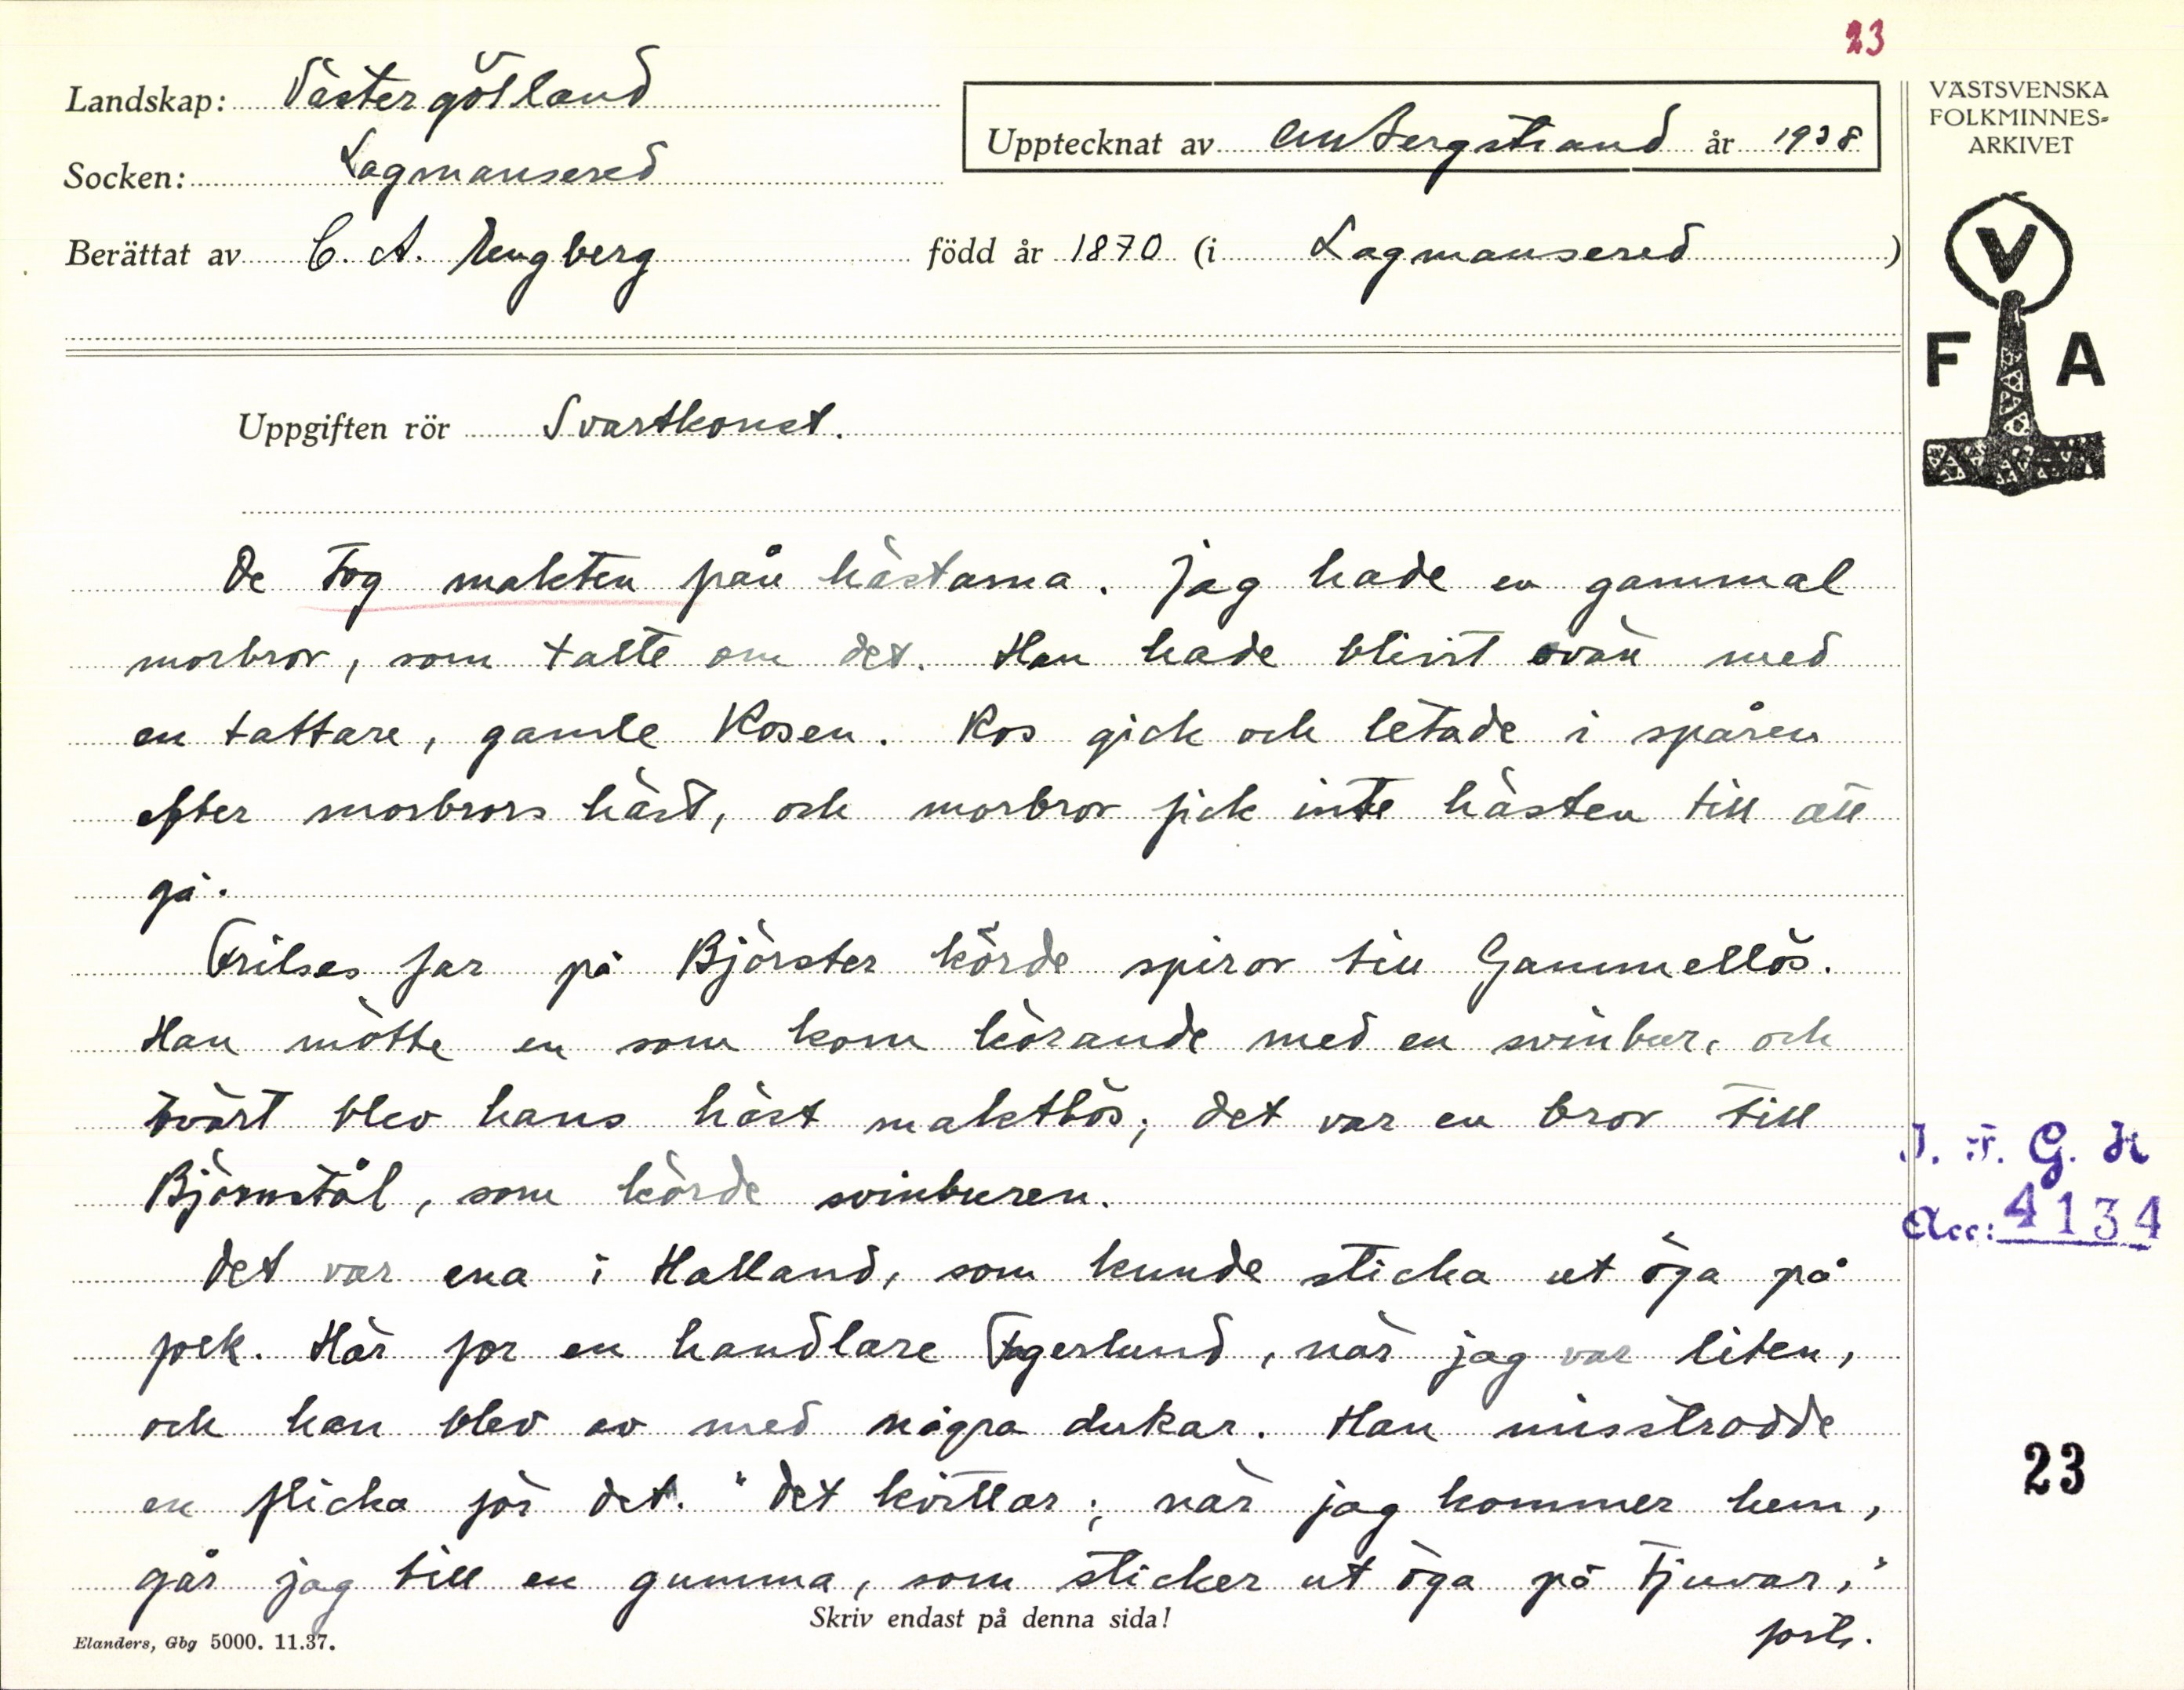 23
Landskap: Västergötland
Socken: Lagmansered
Upptecknat av CM Bergstrand år 1938
Berättat av C. A. Engberg född år 1870 (i Lagmansered)
VÄSTSVENSKA
FOLKMINNES-
ARKIVET
V
F A
Uppgiften rör Svartkonst.
De tog makten påu hästarna. Jag hade en gammal
morbror, som talte om det. Han hade blivit ovän med
en tattare, gamle Rosen. Ros gick och letade i spåren
efter morbrors häst, och morbror fick inte hästen till att
gå.
Frilses far på Björster körde spiror till Gammellös.
Han mötte en som kom körande med en svinbur, och
tvärt blev hans häst maktlös; det var en bror till
Björnstål, som körde svinburen.
Det var ena i Halland, som kunde sticka ut öga på
folk. Här for en handlare Fagerlund, när jag var liten,
och han blev av med några dukar. Han misstrodde
en flicka för det. "Det kvittar; när jag kommer hem,
går jag till en gumma, som sticker ut öga på tjuvar,"
forts.
I. F. G. H
Acc: 4134
23
Skriv endast på denna sida!
Elanders, Gbg 5000. 11.37.